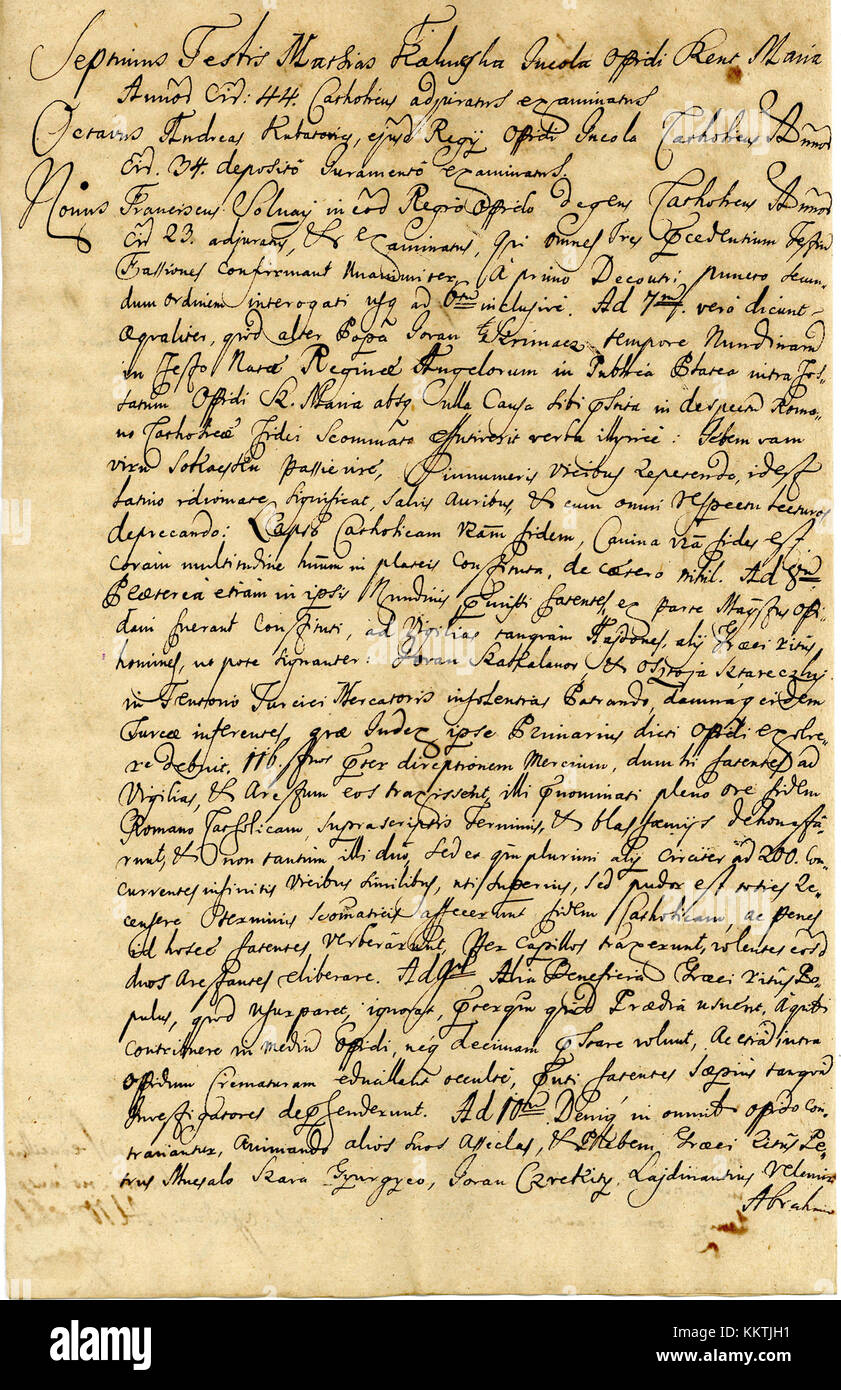 Septimus Testis Mathias Kalussa Incola Opidi Kent Maria
Annor Cir: 44. Catholicus adjuratus examinatus
Octavus Andreas Kutasovics, ejusd Regij Opidi Incola Catholicus Annor
Cir. 34. deposito Juramento examinatus.
Nonus Franciscus Solnay in eod Regio Opido degens Catholicus Annor
Cir 23. adjuratus, & examinatus, qvi omnes tres pcedentium Testiu
Fassiones confirmant Unanimiter, à primo Deoutri: puncto Secun-
dum ordinem interogati usq ad 6tum inclusive. Ad 7mum vero dicunt
æqvaliter, qvod alter Popa Jovan tempore Nundinaru
in Festo Natæ Reginæ Angelorum in Publica Platea intra Fos-
satum Opidi Sz. Maria absq Ulla Causa sibi pstita in despectu Roma-
no Catholicæ Fidei Scommata effutiverit verba illyricè: Jebem vam
viru passie vire, innumeris vicibus repetendo, idest
latino idiomate significat, salvis Auribus, & cum omni respectu
deprecando: Catholicam vram fidem, Canina vra fides est
coram multitudine hnum in plateis constituta, de cætero nihil. Ad 8vum
Præterea etiam in ipsis Nundinis pmissi fatentes ex parte Mattus opi-
dani fuerant constituti, ad Vigilias tanqvam Hajdones, alij Græci ritus
homines, ut pote signanter: Jovan Katkalanor, & Ostoja Ktareczky
in Tentorio Turcici Mercatoris insolentias Patrando, damnaq eidem
Turcæ inferentes, qvæ Judex ipse Primarius dicti Opidi exolve-
re debuit, 116. fnos pter direptionem Mercium, dum hi fatentes ad
Vigilias, & Arestum eos traxissent, illi pnominati pleno ore fidem
Romano Catholicam, suprascriptis Terminis, & blasfæmijs dehonesta-
runt, & non tantum illi duo, sed et qm plurimi alij circiter ad 200. con-
currentes infinitis vicibus similibus, uti superius, sed pudor est toties re-
censere terminis scomaticis affecerunt fidem Catholicam, ac penes
id hosce fatentes verberarunt, Per Capillos traxerunt, volentes eosd
duos Arestantes eliberare. Ad 9num Alia Beneficia Græci ritus Po-
pulus, qvod usurparet, ignorat, pterqm qvod Prædia usuent, Aqviti
Contribuere in mediu Opidi, neq decimam pstare volunt, ac etiam intra
opidum Crematuram educillant occultè, puti fatentes Sæpius tanqvm
Investigatores depsenderunt. Ad 10mum Deniq in omnib opido con-
trariantur, Animando alios suos Asseclas, & Plebem Græci ritus Pe-
trus Mucsalo Skara Gyurgyeo, Jovan Czvetkity, Lajdinantius Velemir
Abraham